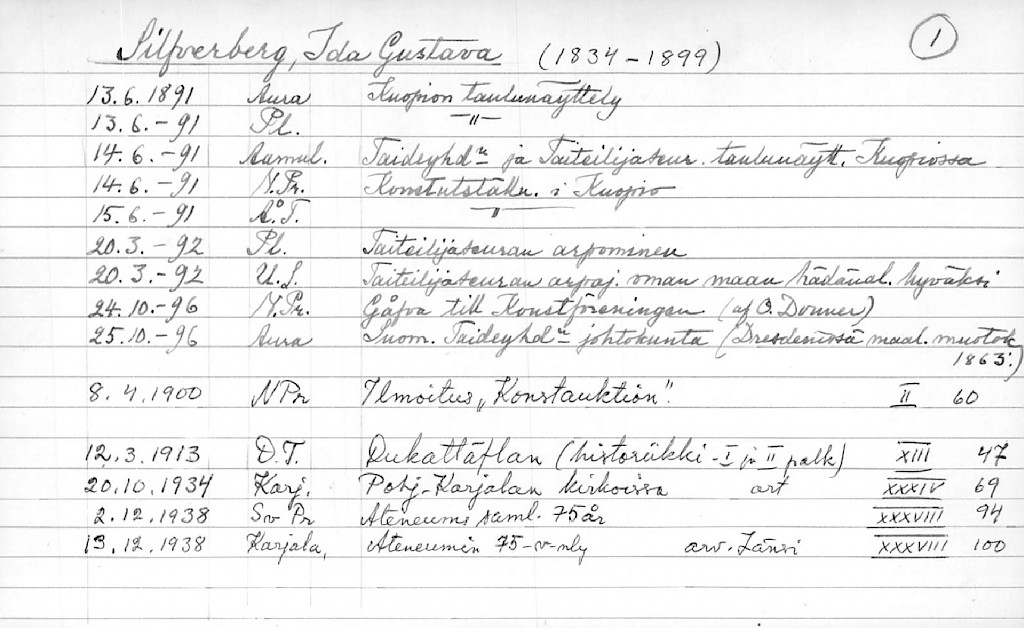 Silfverberg, Ida Gustava (1834-1899) 1
13.6.1891 Aura Kuopion taulunäyttely
13.6.-91 Pl. -"-
14.6.-91 Aamul. Taideyhd:n ja Taiteilijaseur. taulunäytt. Kuopiossa
14.6.-91 N.Pr. Konstutställn. i Kuopio
15.6.-91 Å.T. -"-
20.3.-92 Pl. Taiteilijaseuran arpominen
20.3.-92 U.S. Taiteilijaseuran arpaj. oman maan hädänal. hyväksi
24.10.-96 N.Pr. Gåfva till Konstföreningen (af O. Donner)
25.10.-96 Aura Suom. Taideyhd:n johtokunta (Dresdenissä maal. muotok.
1863.)
8.4.1900 N Pr Ilmoitus „Konstauktion". II 60
12.3.1913 D.T. Dukattäflan (historiikki - I ja II palk) XIII 47
20.10.1934 Karj. Pohj-Karjalan kirkoissa art XXXIV 69
2.12.1938 Sv Pr Ateneums saml. 75 år XXXVIII 94
13.12.1938 Karjala, Ateneumin 75-v-nly arv. Länsi XXXVIII 100